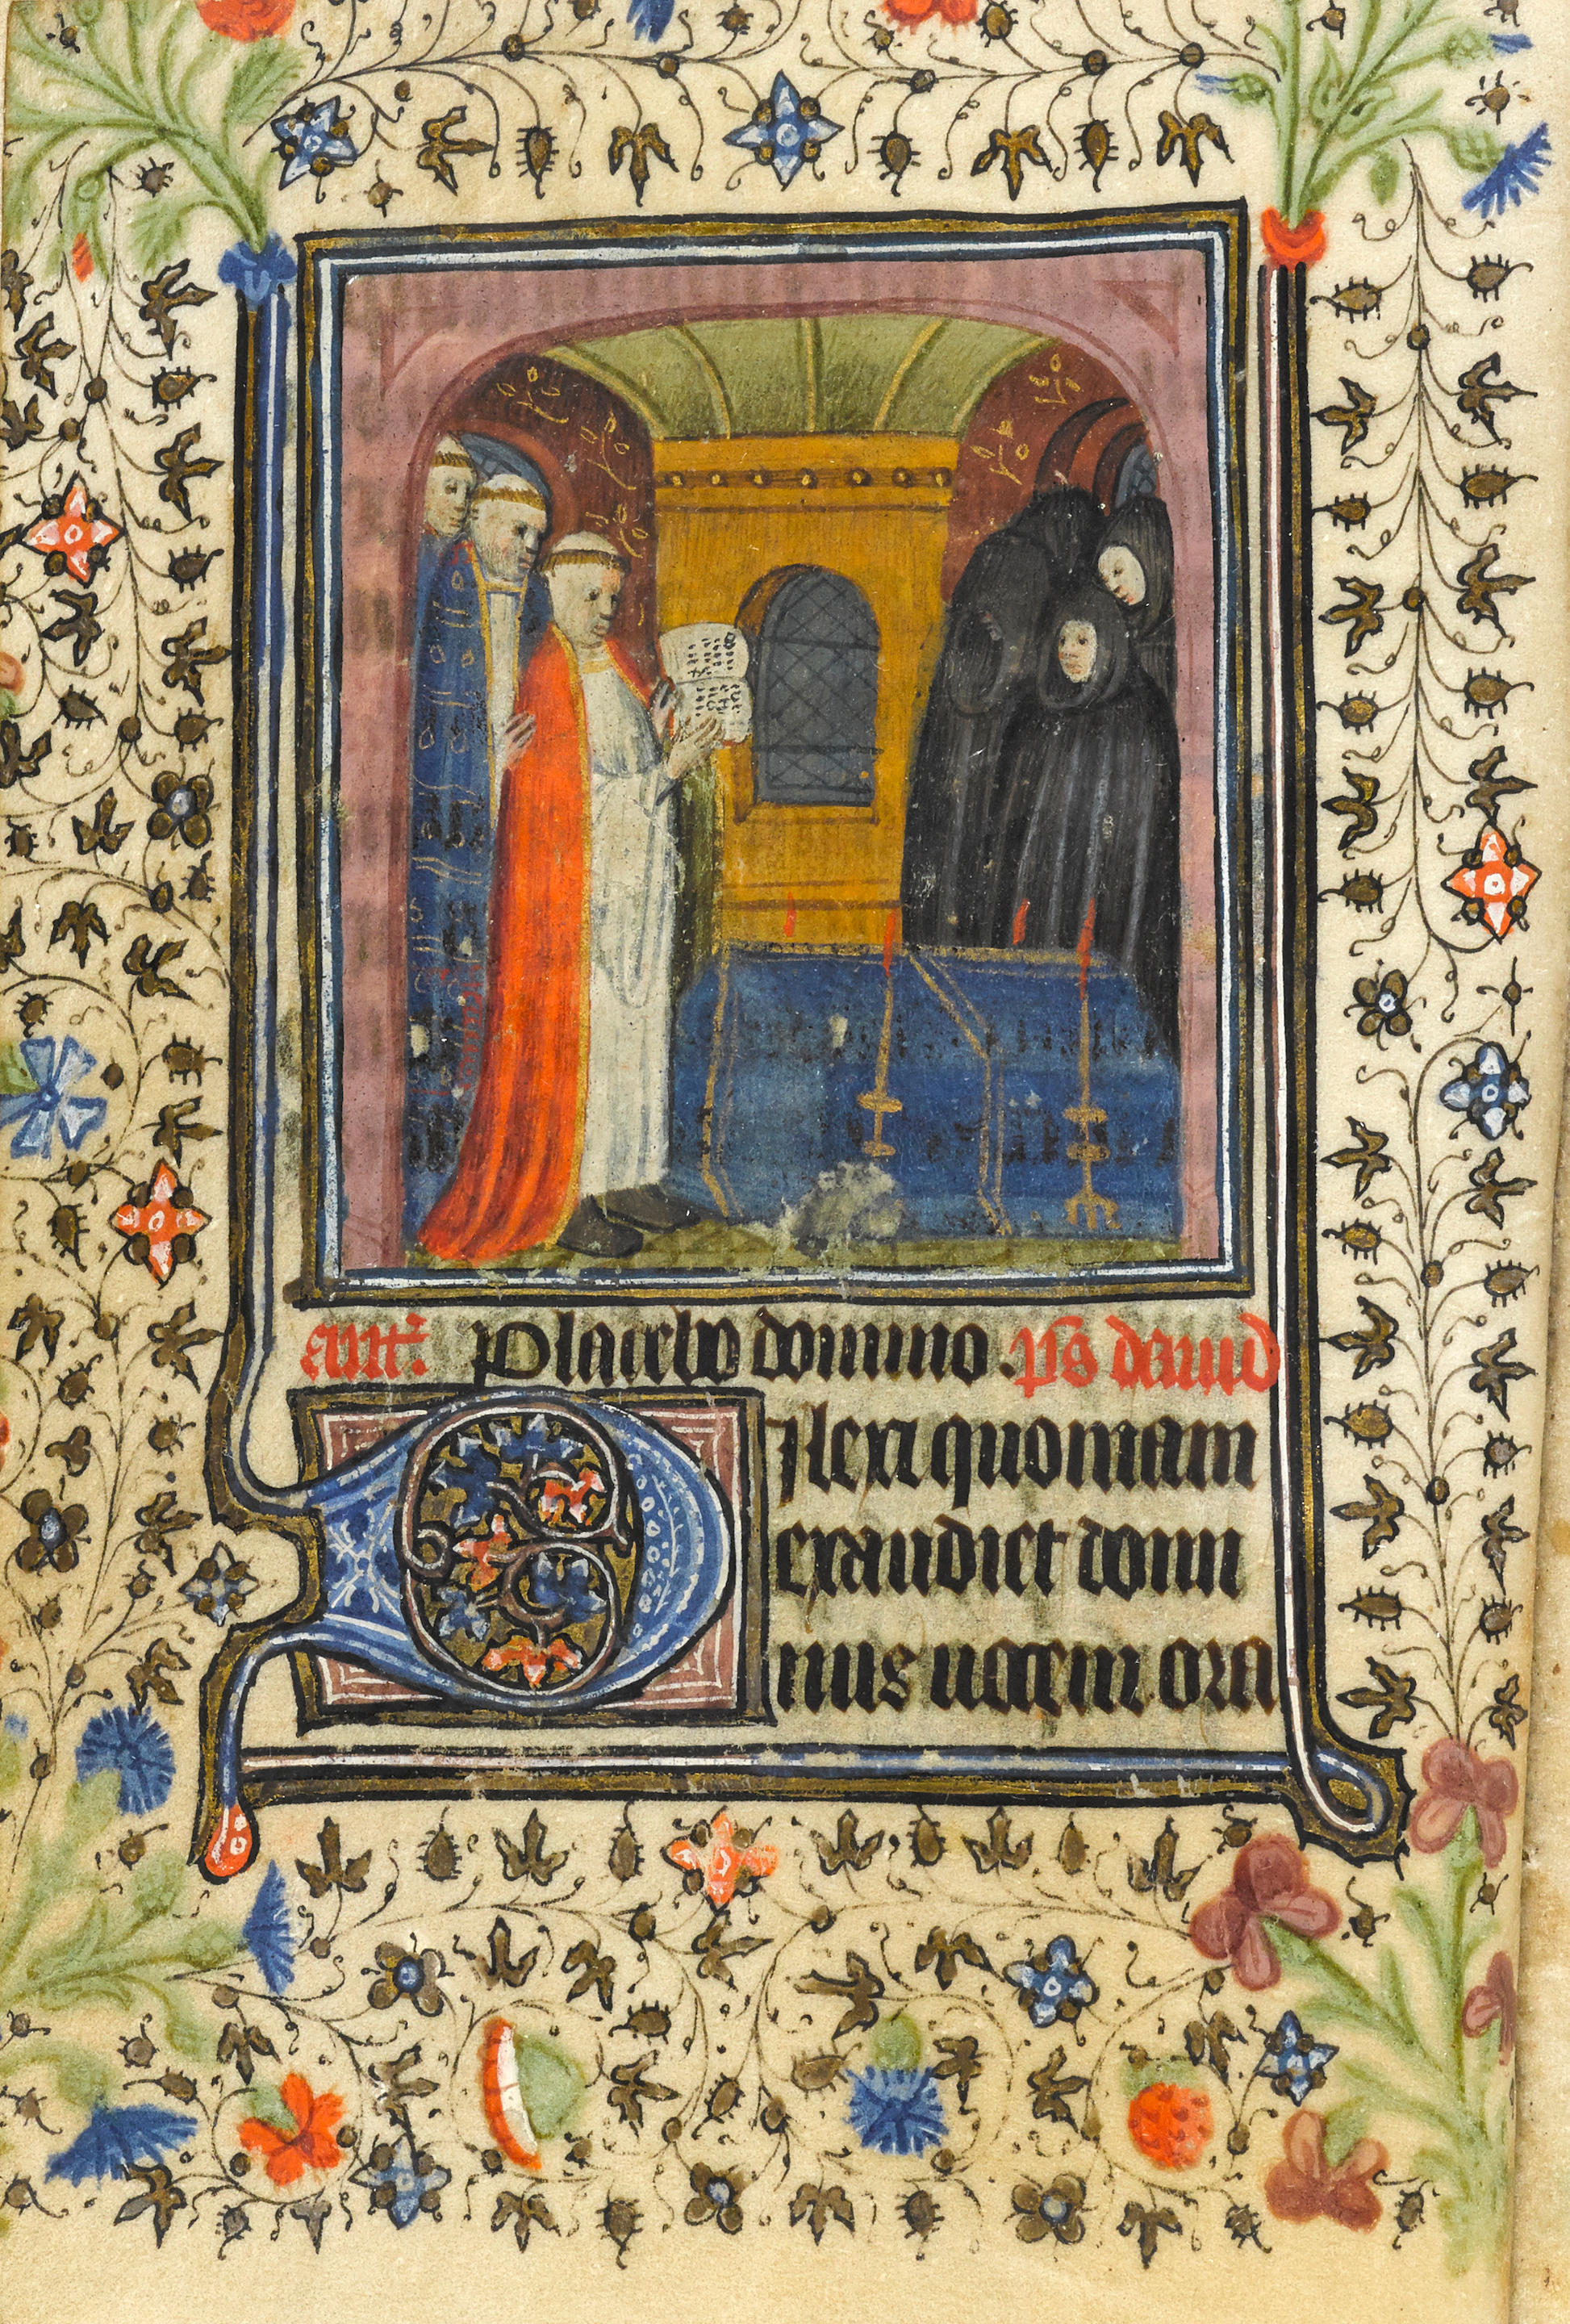 ant. Placebo domino. ps dauid
Dilexi quoniam
exaudiet domi
nus uocem ora